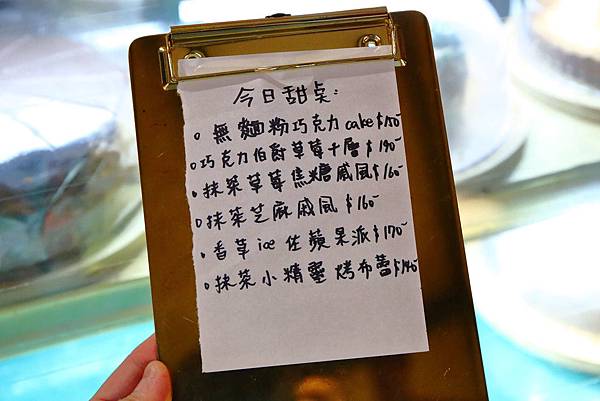 今日甜桌：
。無麵粉巧克力 cake $150
。巧克力伯爵草莓千層 $190-
。抹茶草莓焦糖戚風 $160-
。抹茶芝麻戚風 $160-
。香草 ice 佐蘋果派 $170-
。抹茶小精靈烤布蕾 $140-